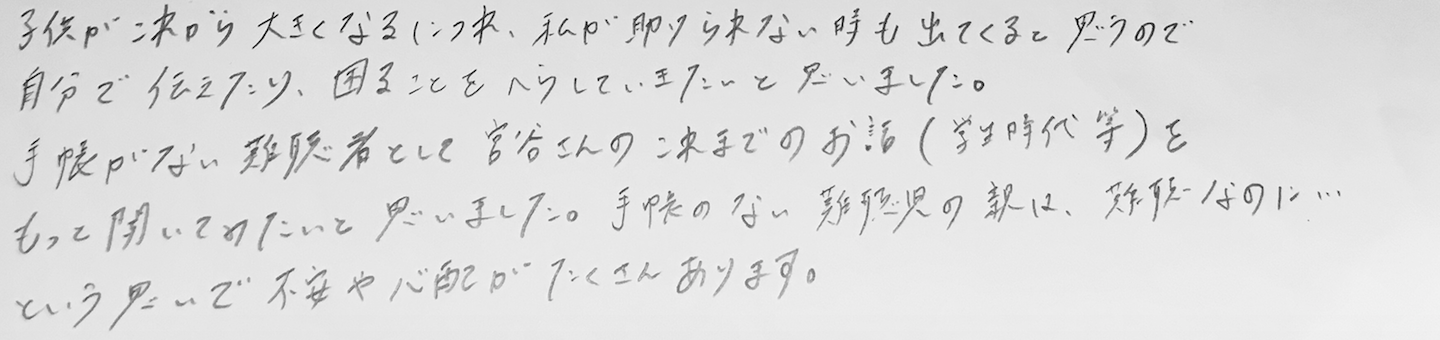 子供がこれから大きくなるにつれ、私が助けられない時も出てくると思うので
自分で伝えたり、困ることをへらしていきたいと思いました。
手帳がない難聴者として宮谷さんのこれまでのお話(学生時代等)を
もって聞いてみたいと思いました。手帳のない難聴児の親は、難聴なのに…
という思いで不安や心配がたくさんあります。